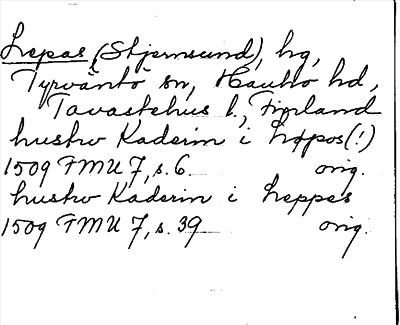 Lepas (Stjernsund), hg,
Tyrväntö sn, Hauho hd,
Tavastehus l., Finland
hustrv Kaderin i Lepos(!)
1509 FMU 7, s. 6. orig.
hustrv Kaderin i Leppes
1509 FMU 7, s. 39 orig.